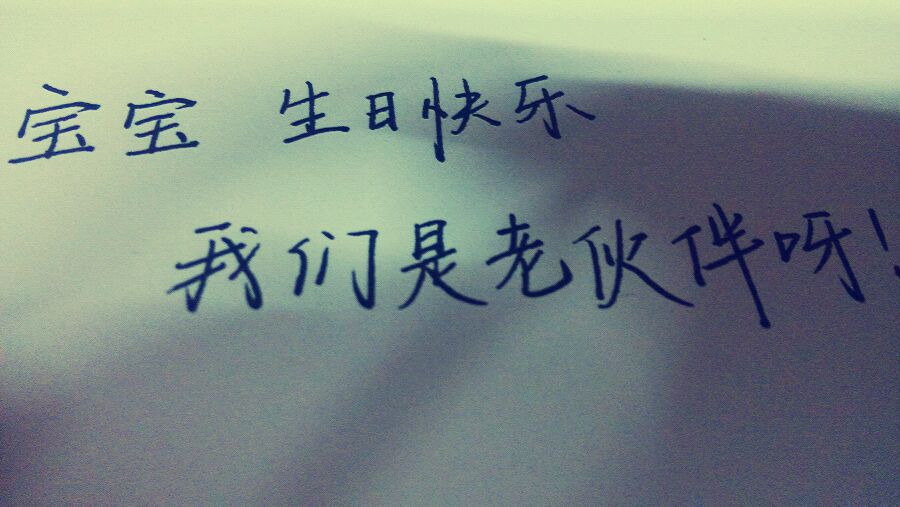 宝宝 生日快乐
我们是老伙伴呀!